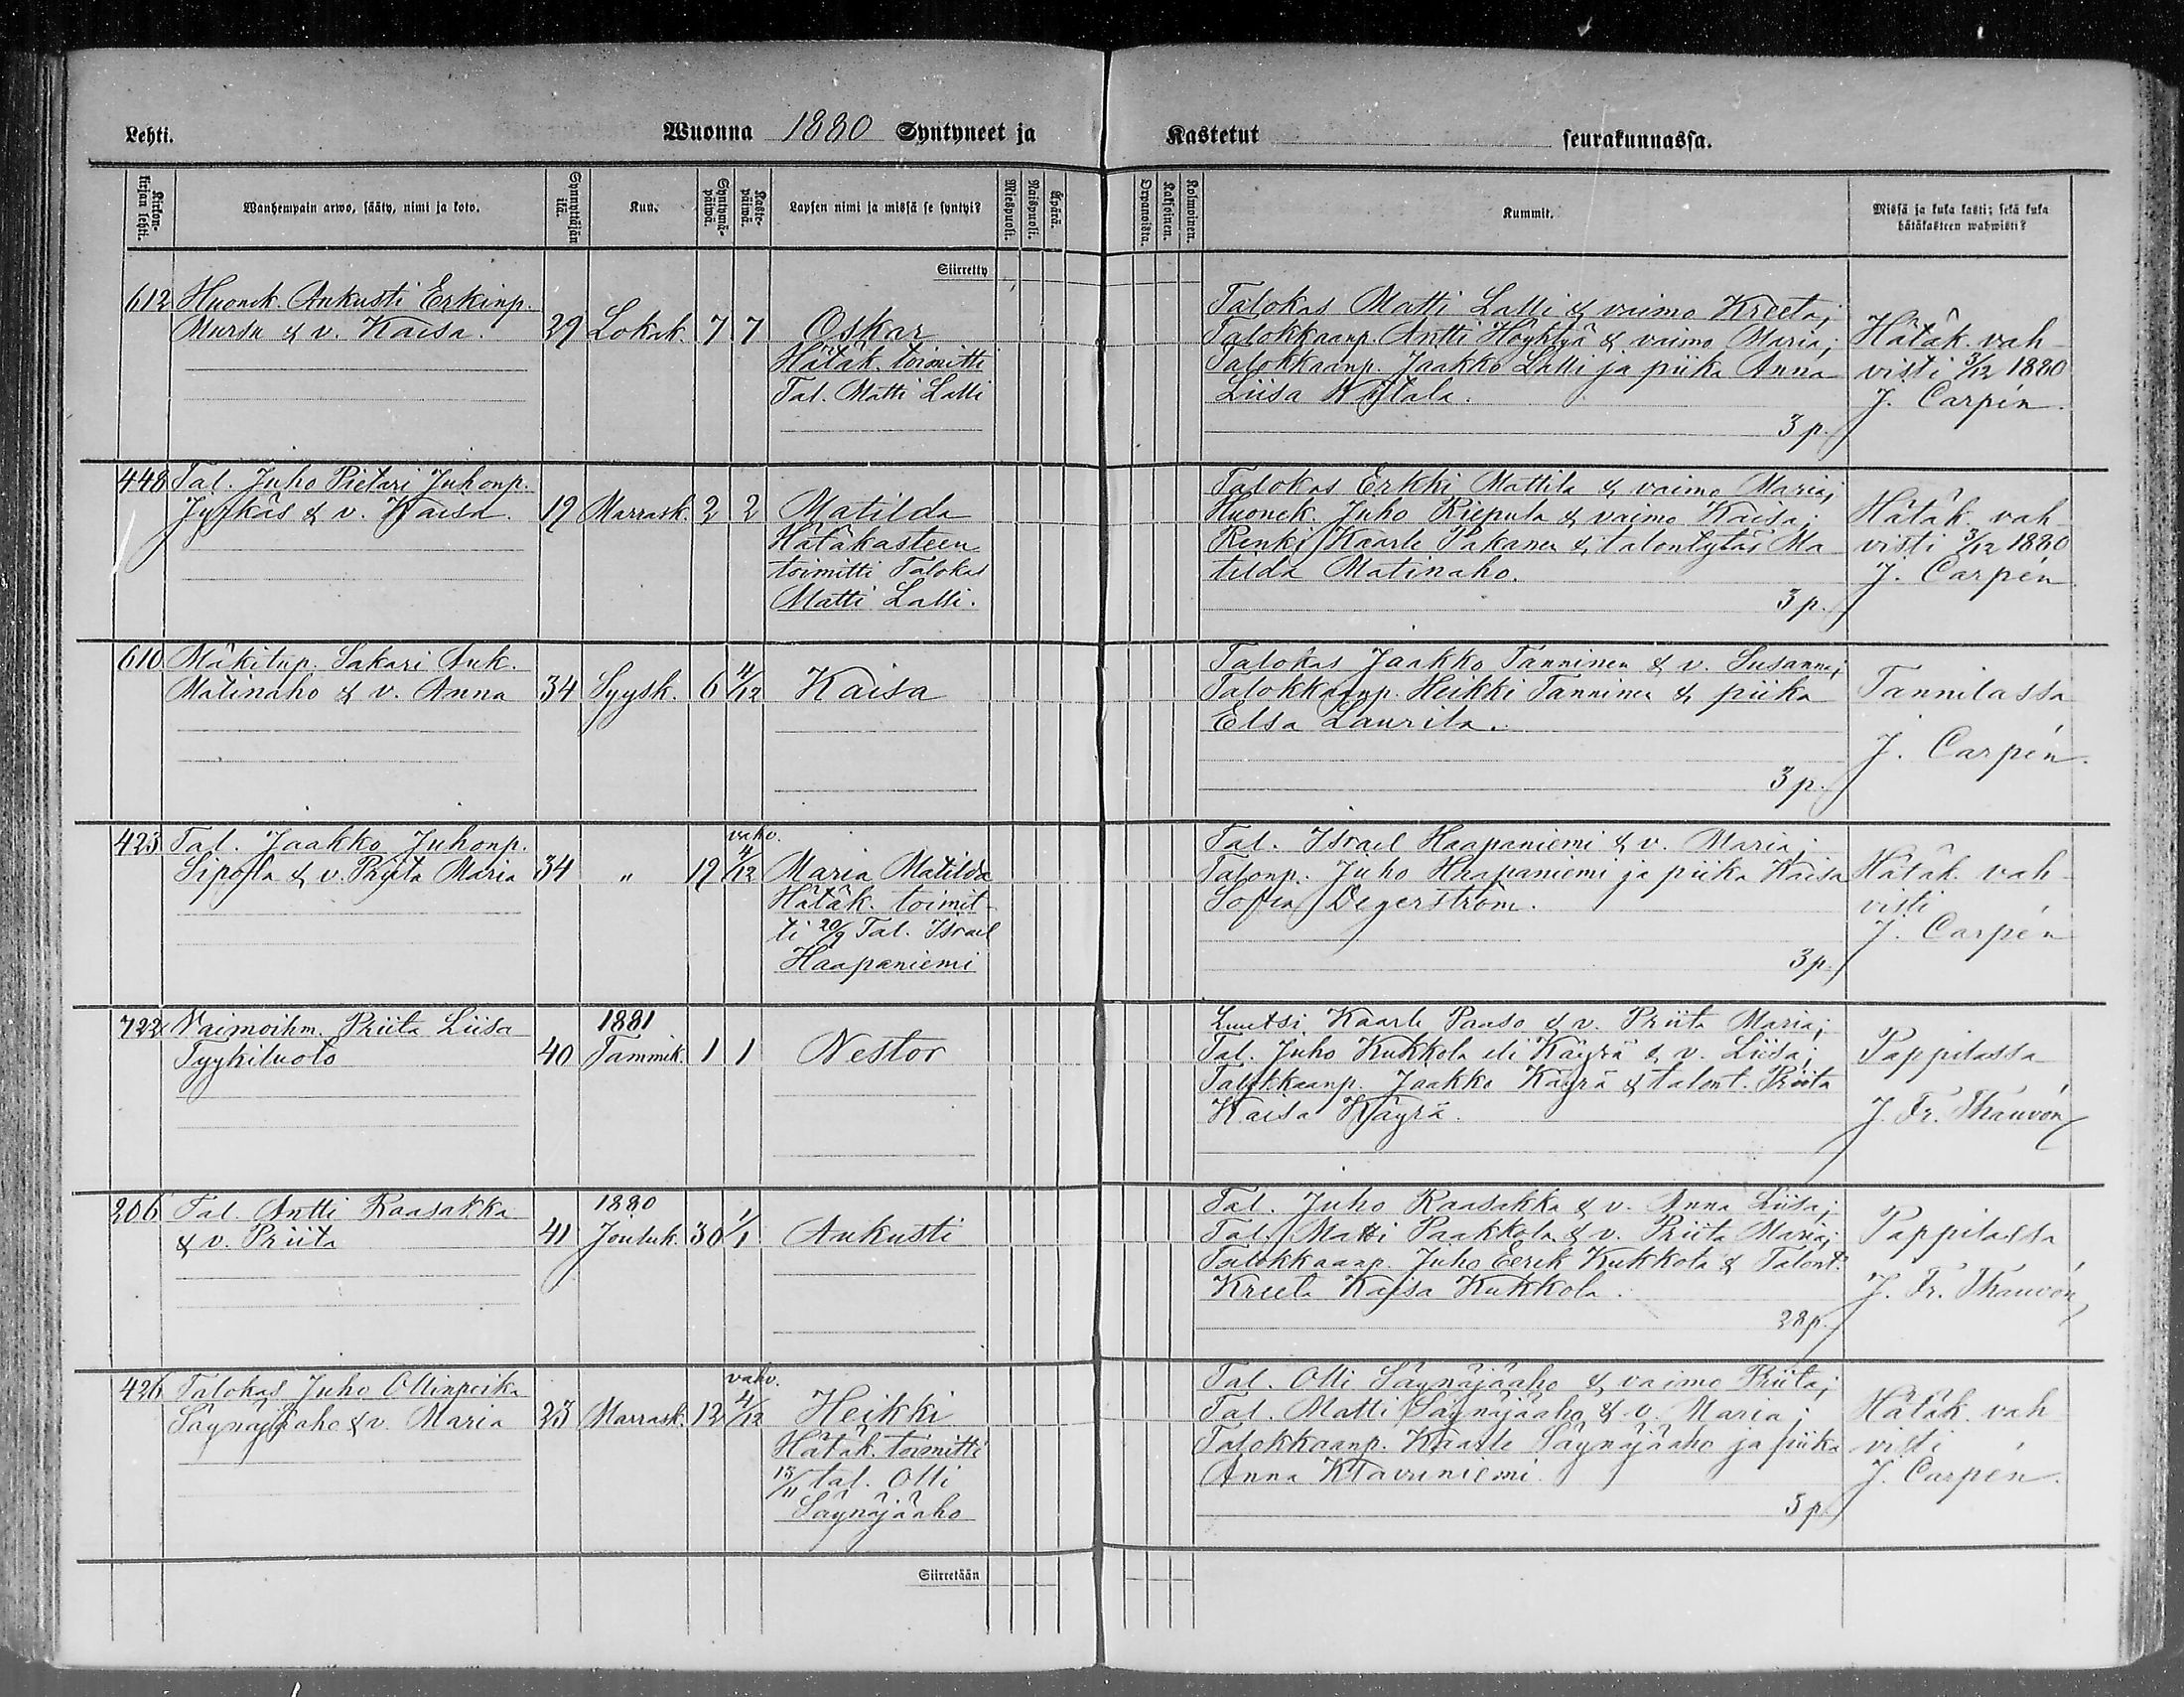 Lehti.
Wuonna 1880 Syntyneet ja
Kastetut seurakunnassa.
Wanhempain arwo, sääty, nimi ja koto.
Synnyttäjän ikä.
Kuu.
Syntymä-päiwä.
Kaste-päiwä.
Lapsen nimi ja missä se syntyi?
Miespuoli.
Naispuoli.
Äpärä.
Kaksoinen.
Kolmoinen.
Kummit.
Missä ja kuka kasti; sekä kuka
hätäkasteen wahwisti?
Siirretty
612 Huonek. Aukusti Erkinp.
Mursu & v. Kaisa. 29 Lokak. 7 7 Oskar
Hätäk. toimitti
Tal. Matti Lalli
Talokas Matti Lalli & vaimo Kreeta;
Talokkaanp. Antti Höyhtyä & vaimo Maria;
Talokkaanp. Jaakko Lalli ja piika Anna
Liisa
3 p.
Hätäk. vah-
visti 3/12 1880
J. Carpén.
448 Tal. Juho Pietari Juhonp.
Jyrkäs & v. Kaisa. 19 Marrask. 2 2 Matilda
Hätäkasteen
toimitti Talokas
Matti Lalli.
Talokas Erkki Mattila & vaimo Maria;
Huonek. Juho Riepula & vaimo Kaisa;
Renki Kaarle Pakanen & talontytär Ma-
tilda Matinaho.
3 p.
Hätäk. vah-
visti 3/12 1880
J. Carpén
610 Mäkitup. Sakari Auk.
Matinaho & v. Anna 34 Syysk. 6 4/12 Kaisa
Talokas Jaakko Tanninen & v. Susanna;
Talokkaanp. Heikki Tanninen & piika
Elsa Laurila.
3 p.
Tannilassa
J. Carpén.
423 Tal. Jaakko Juhonp.
Sipola & v. Priita Maria 34 " 19 vahv. 4/12 Maria Matilda
Hätäk. toimit-
ti 20/9 Tal. Israel
Haapaniemi
Tal. Israel Haapaniemi & v. Maria;
Talonp. Juho Haapaniemi ja piika Kaisa
Sofia Degerström.
3 p.
Hätäk. vah-
visti
J. Carpén
722 Vaimoihm. Priita Liisa
1881
Tyyhiluoto 40 Tammik. 1 1 Nestor
Kaarle Paaso & v. Priita Maria;
Tal. Juho Kukkola eli Käyrä & v. Liisa;
Talokkaanp. Jaakko Käyrä & talont. Priita
Kaisa Käyrä.
Pappilassa
J. Fr. Thauvón
206 Tal. Antti Raasakka
1880
& v. Priita 41 Jouluk. 30 1/1 Aukusti
Tal. Juho Raasakka & v. Anna Liisa;
Tal. Matti Paakkola & v. Priita Maria;
Talokkaanp. Juho Eerik Kukkola & Talont.
Kreeta Kaisa Kukkola.
28 p.
Pappilassa
J. Fr. Thauvón
426 Talokas Juho Ollinpoika
Säynäjäaho & v. Maria 23 Marrask. 12 vahv. 4/12 Heikki
Hätäk. toimitti
13/11 tal. Olli
Säynäjäaho
Tal. Olli Säynäjäaho & vaimo Priita;
Tal. Matti Säynäjäaho & v. Maria;
Talokkaanp. Kaarle Säynäjäaho ja piika
Anna
3 p.
Hätäk. vah-
visti
J. Carpén.
Siirretään